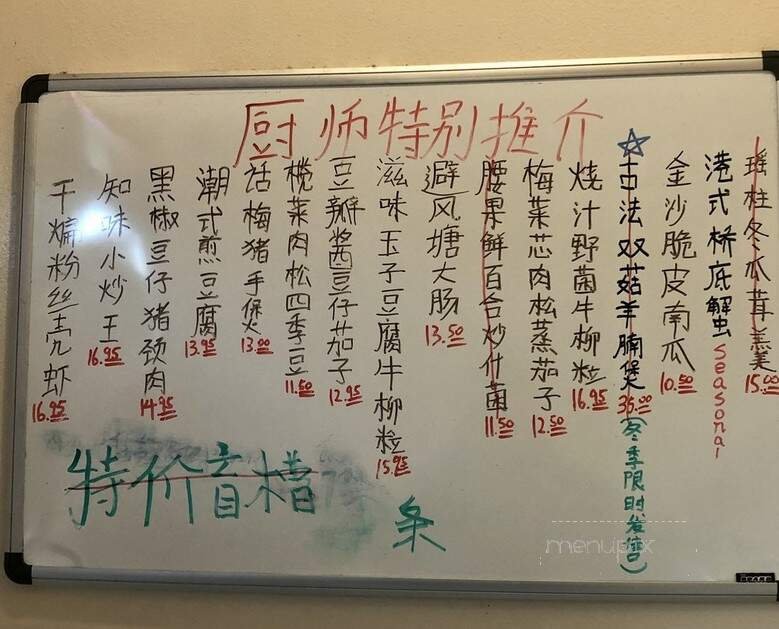 厨师特别推介
瑶柱冬瓜茸羹 15.00
港式桥底蟹 seasonal
金沙脆皮南瓜 10.50
☆古法双菇羊腩煲 36.00 (冬季限时发售)
烧汁野菌牛柳粒 16.95
梅菜芯肉松蒸茄子 12.50
腰果鲜百合炒什菌 11.50
避风塘大肠 13.50
滋味玉子豆腐牛柳粒 15.95
豆瓣酱豆仔茄子 12.95
榄菜肉松四季豆 11.50
话梅猪手煲 13.00
潮式煎豆腐 13.95
黑椒豆仔猪颈肉 14.95
知味小炒王 16.95
干煸粉丝壳虾 16.95
特价音槽
条
menupix